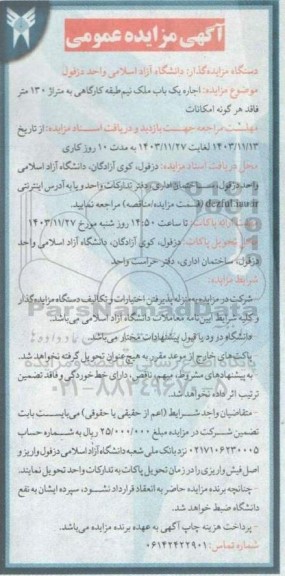 آگهی مزایده عمومی
دستگاه مزایده‌گذار: دانشگاه آزاد اسلامی واحد دزفول
موضوع مزایده: اجاره یک باب ملک نیم‌طبقه کارگاهی به متراژ ۱۳۰ متر
فاقد هر گونه امکانات
مهلت مراجعه جهت بازدید و دریافت اسناد مزایده: از تاریخ
۱۴۰۳/۱۱/۱۳ لغایت ۱۴۰۳/۱۱/۲۷ به مدت ۱۰ روز کاری
محل دریافت اسناد مزایده: دزفول، کوی آزادگان، دانشگاه آزاد اسلامی
واحد دزفول، ساختمان اداری، دفتر تدارکات واحد و یا به آدرس اینترنتی
dezful.iau.ir (قسمت مزایده/مناقصه) مراجعه نمایید.
پاکات: تا ساعت ۱۴:۵۰ روز شنبه مورخ ۱۴۰۳/۱۱/۲۷
محل تحویل پاکات: دزفول، کوی آزادگان، دانشگاه آزاد اسلامی واحد
دزفول، ساختمان اداری، دفتر حراست واحد
شرایط مزایده:
شرکت در مزایده به منزله پذیرفتن اختیارات و تکالیف دستگاه مزایده‌گذار
و کلیه شرایط آیین‌نامه معاملات دانشگاه آزاد اسلامی می‌باشد.
دانشگاه در رد یا قبول پیشنهادات مختار می‌باشد.
پاکت‌های خارج از موعد مقرر به هیچ عنوان تحویل گرفته نخواهد شد.
به پیشنهادهای مشروط، مبهم، ناقص، دارای خط‌خوردگی و فاقد تضمین
ترتیب اثر داده نخواهد شد.
-متقاضیان واجد شرایط (اعم از حقیقی یا حقوقی) می‌بایست بابت
تضمین شرکت در مزایده مبلغ ۲۵/۰۰۰/۰۰۰ ریال به شماره حساب
۰۲۱۷۱۰۶۲۳۰۰۰۵ نزد بانک ملی شعبه دانشگاه آزاد اسلامی دزفول واریز و
اصل فیش واریزی را در زمان تحویل پاکات به تدارکات واحد تحویل نمایند.
-چنانچه برنده مزایده حاضر به انعقاد قرارداد نشود، سپرده ایشان به نفع
دانشگاه ضبط خواهد شد.
-پرداخت هزینه چاپ آگهی به عهده برنده مزایده می‌باشد.
شماره تماس: ۰۶۱۴۲۴۲۲۹۰۱
ParsNamadData
۰۲۱-۸۸۳۴۹۶۷۰-۵